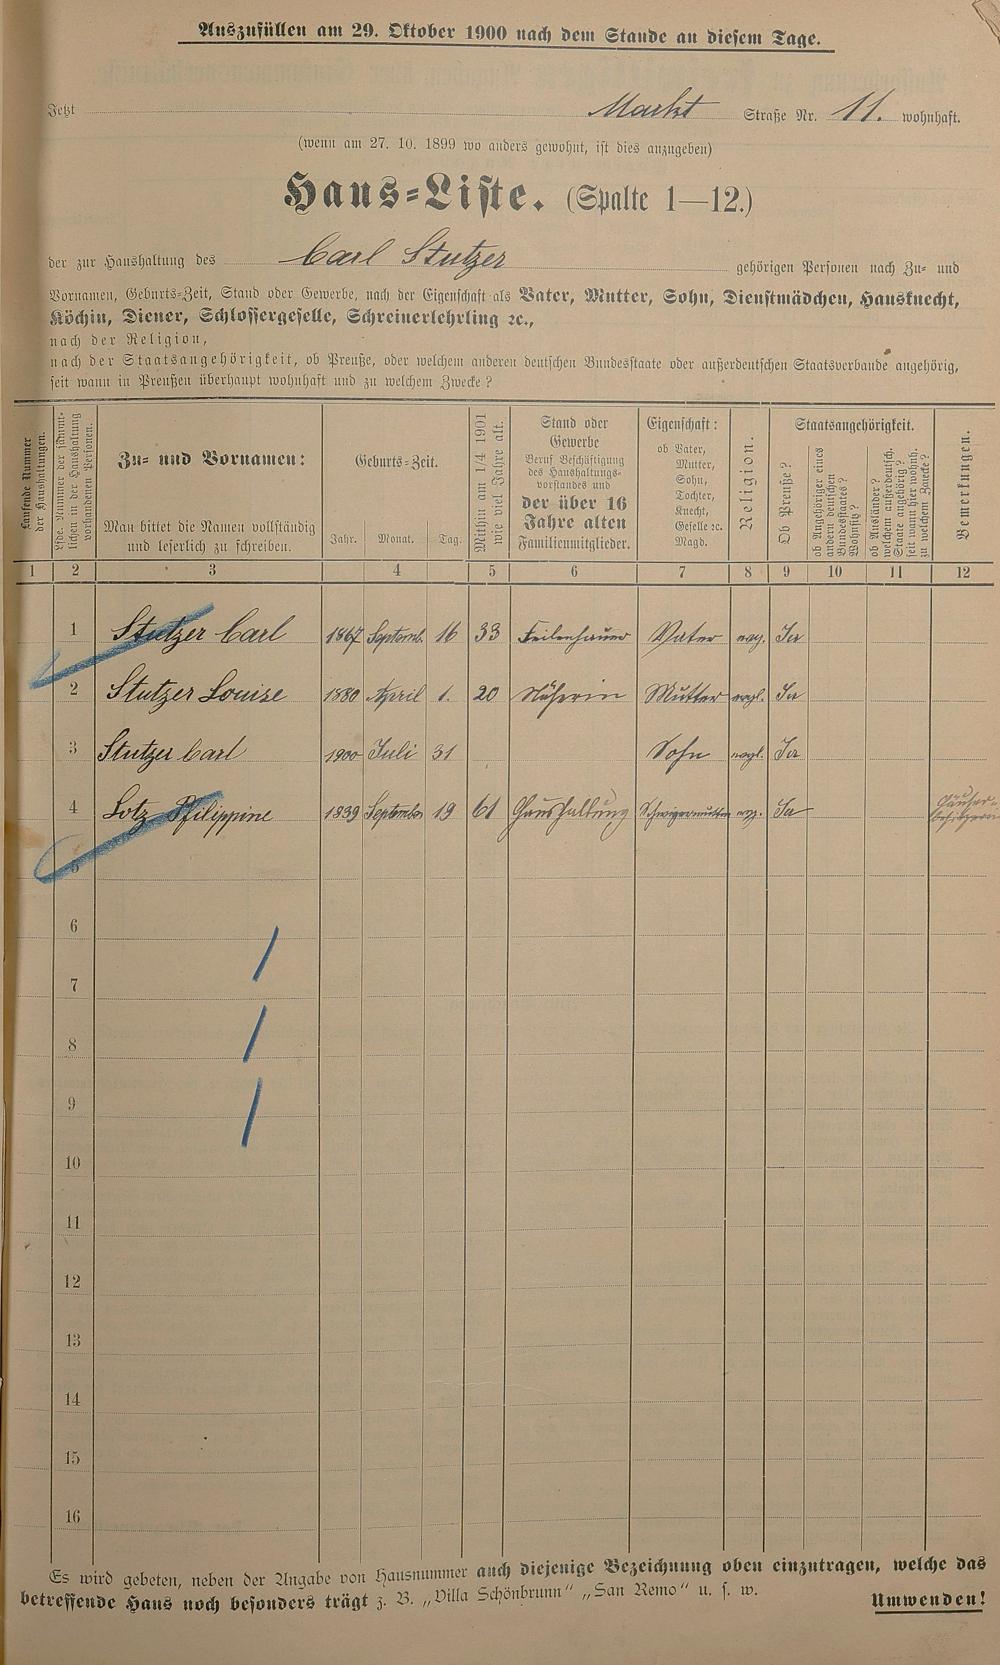 Auszufüllen am 29. Oktober 1900 nach dem Stande an diesem Tage.
Jetzt Markt Straße Nr. 11. wohnhaft.
(wenn am 27. 10. 1899 wo anders gewohnt, ist dies anzugeben)
Haus-Liste. (Spalte 1—12.)
der zur Haushaltung des Carl Stutzer gehörigen Personen nach Zu- und
Vornamen, Geburts-Zeit, Stand oder Gewerbe, nach der Eigenschaft als Vater, Mutter, Sohn, Dienstmädchen, Hausknecht,
Köchin, Diener, Schlossergeselle, Schreinerlehrling ꝛc.,
nach der Religion,
nach der Staatsangehörigkeit, ob Preuße, oder welchem anderen deutschen Bundesstaate oder außerdeutschen Staatsverbande angehörig,
seit wann in Preußen überhaupt wohnhaft und zu welchem Zwecke?
Laufende Nummer
der Haushaltungen.
Lfde. Nummer der sämmt-
lichen in der Haushaltung
vorhandenen Personen.
Zu- und Vornamen:
Man bittet die Namen vollständig
und leserlich zu schreiben.
Geburts-Zeit.
Jahr. Monat. Tag.
Mithin am 1/4 1901
wie viel Jahre alt.
Stand oder
Gewerbe
Beruf Beschäftigung
des Haushaltungs-
vorstandes und
der über 16
Jahre alten
Familienmitglieder.
Eigenschaft:
ob Vater,
Mutter,
Sohn,
Tochter,
Knecht,
Geselle ꝛc.
Magd.
Religion.
Staatsangehörigkeit.
Ob Preuße?
ob Angehöriger eines
andern deutschen
Bundesstaates?
Wohnsitz?
ob Ausländer?
welchem außerdeutsch.
Staate angehörig?
seit wann hier wohnh.
zu welchem Zwecke?
Bemerkungen.
1 2 3 4 5 6 7 8 9 10 11 12
1 Stutzer Carl 1867 Septemb. 16 33 Feilenhauer Vater evg. Ja
2 Stutzer Louise 1880 April 1. 20 Näherin Mutter evgl. Ja
3 Stutzer Carl 1900 Juli 31 Sohn evgl. Ja
4 Lotz Philippine 1839 September 19 61 Haushaltung Schwiegermutter evg. Ja Häuser-
besitzerin
5
6
7
8
9
10
11
12
13
14
15
16
Es wird gebeten, neben der Angabe von Hausnummer auch diejenige Bezeichnung oben einzutragen, welche das
betreffende Haus noch besonders trägt z. B. „Villa Schönbrunn" „San Remo" u. s. w. Umwenden!